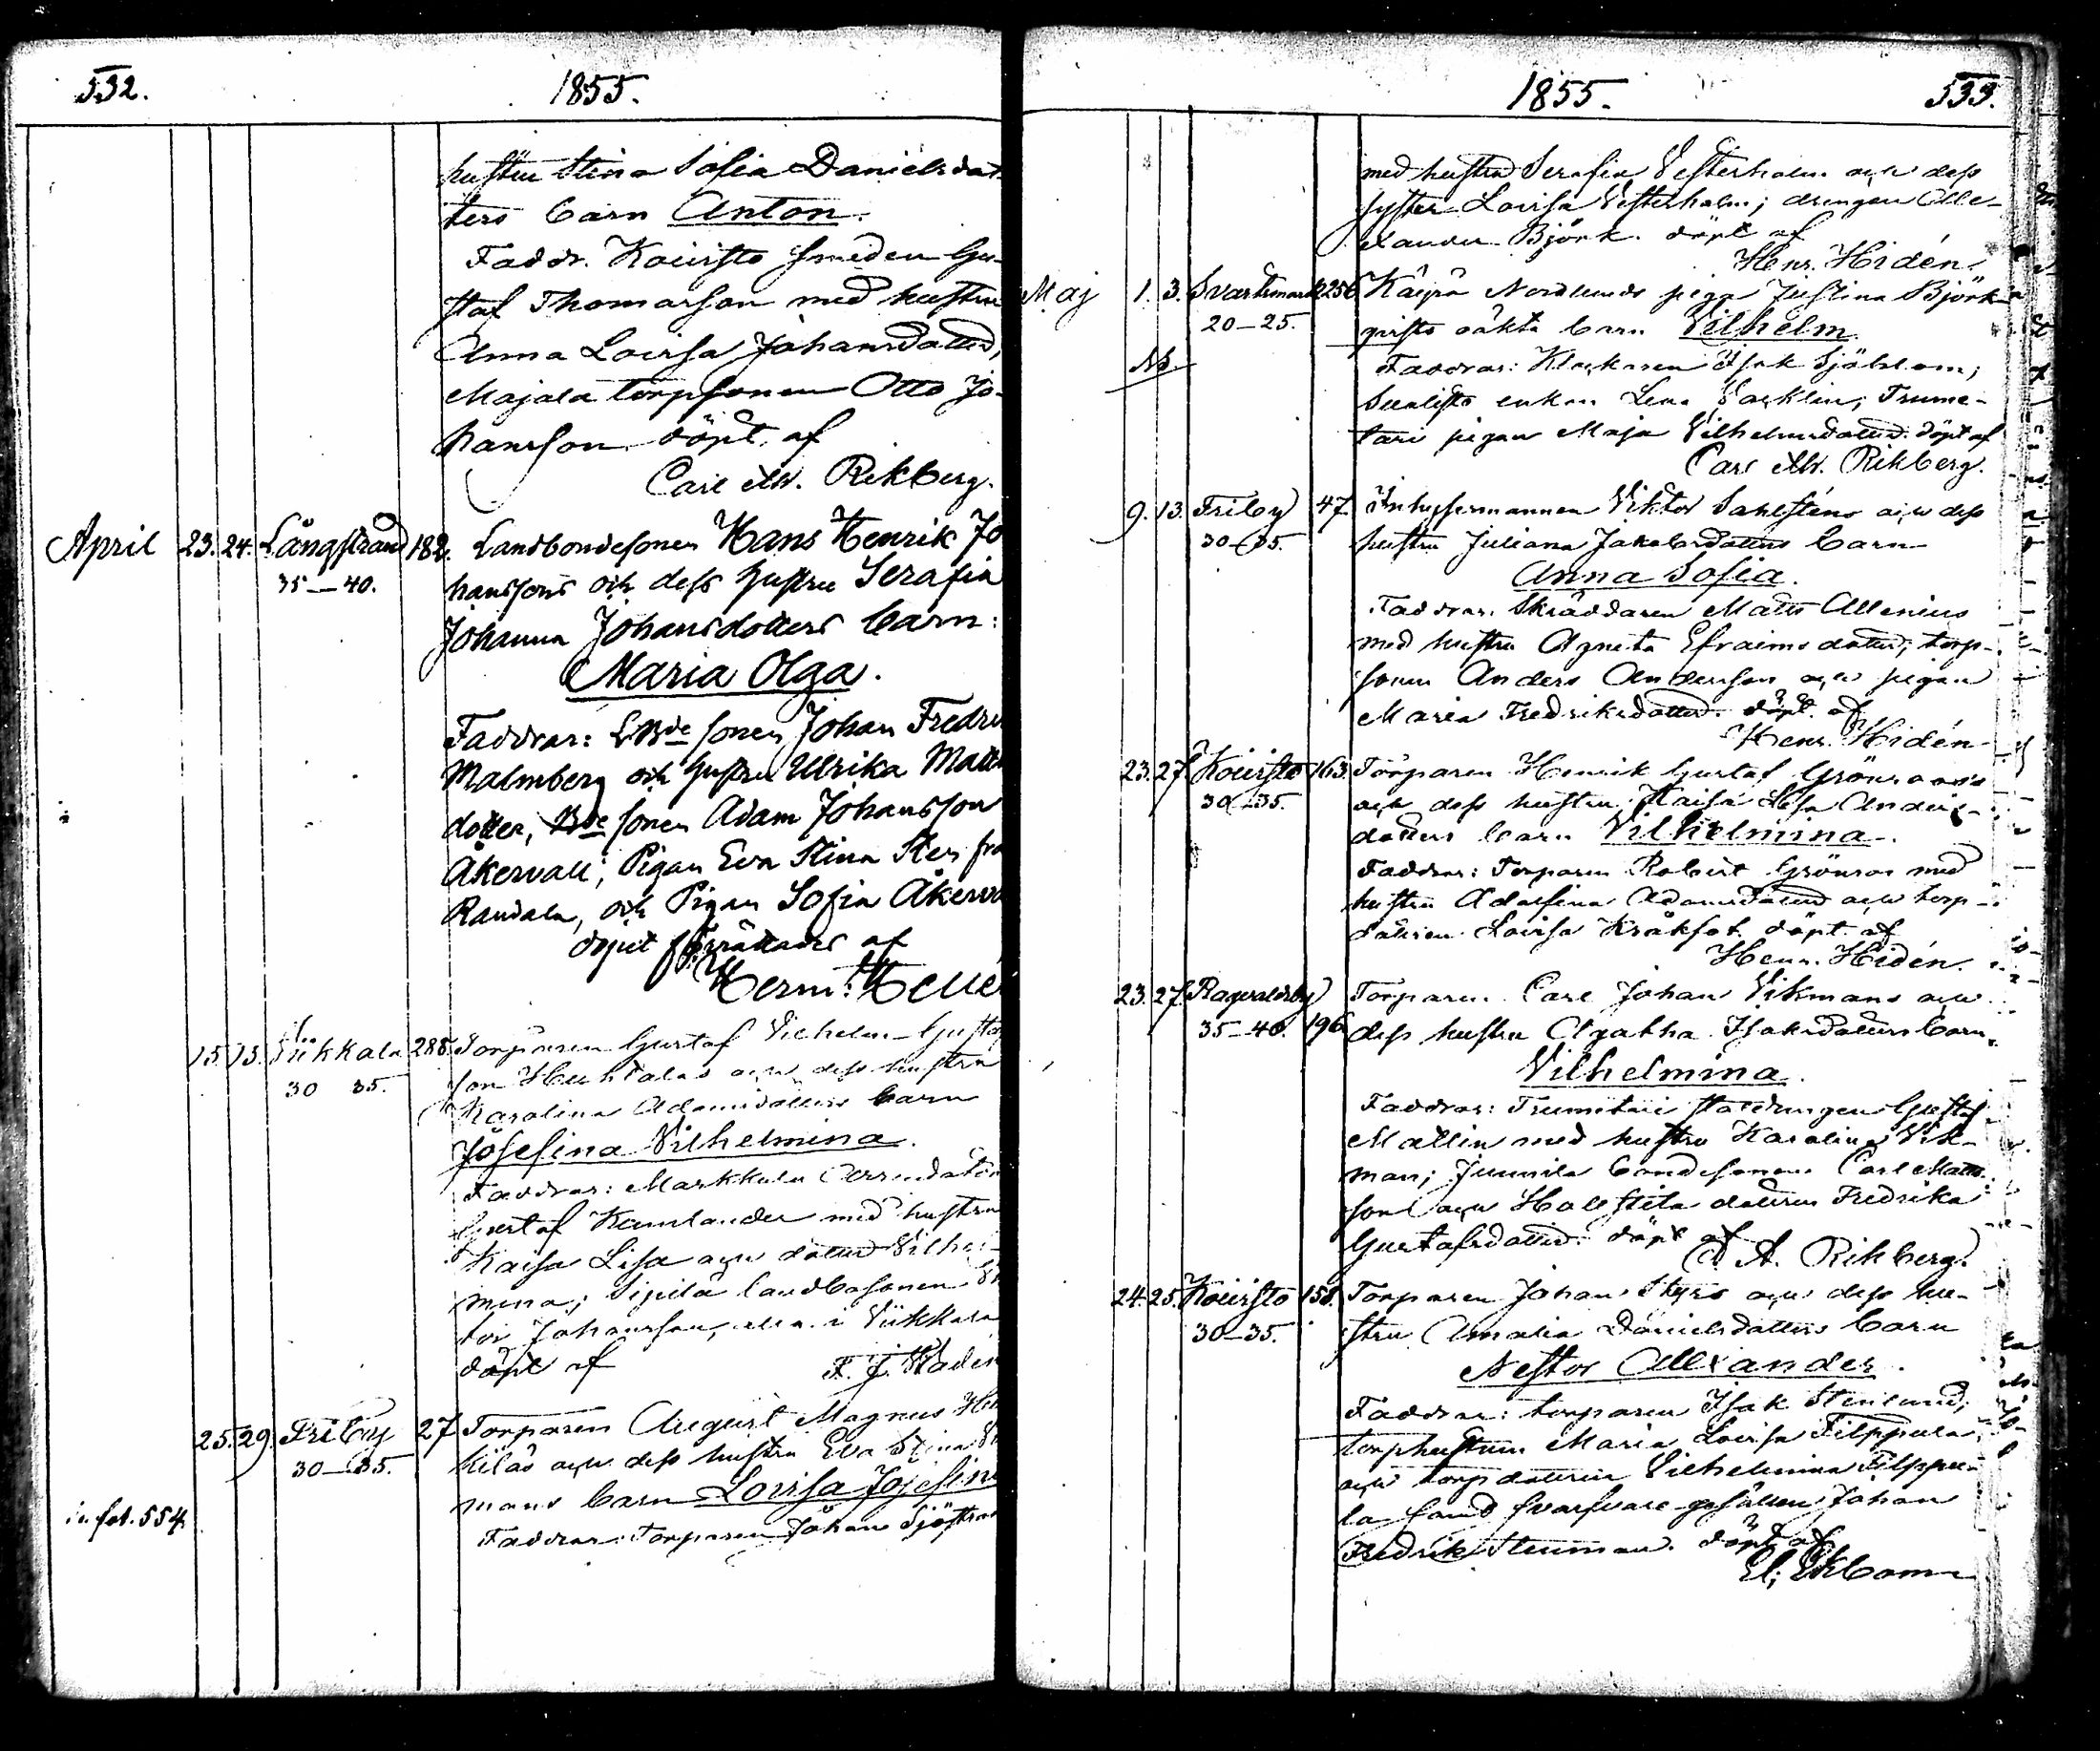 532. 1855.
hustru Stina Sofia Danielsdot-
ters barn Anton.
Faddr. Kouisto smeden Gu-
staf Thomasson med hustru
Anna Lovisa Johansdotter,
Majala torpsonen Otto Jo-
hansson. döpt. af
Carl Rikberg.
April 23. 24. Långstrand 182. Landbondesonen Hans Henrik Jo
35–40. hanssons och dess hustru Serafia
Johanna Johansdotters barn:
Maria Olga.
Faddrar: sonen Johan Fredri
Malmberg och hustru Ulrika Matts
dotter, sonen Adam Johansson
Åkervall; Pigan Eva Stina Sten frå
Randala, och Pigan Sofia Åkerva
döpt förrättades af
Herm:
15. 15. Viikkala 288. Torparen Gustaf Vilhelm Gustaf
30 35. son Huhtalas och dess hustru
Karolina Adamsdotters barn
Josefina Vilhelmina.
Faddrar: Markkula Arrendatorn
Gustaf Kumlander med hustru
Kaisa Lisa och dotter Vilhel-
mina; Sipilä landbosonen
tor Johansson, alla i Viikkala
döpt af F. J.
25. 29. Friby 27 Torparen August Magnus
30–35. kiläs och dess hustru Eva Stina
mans barn Lovisa Josefina
in fol. 554. Faddrar: Torparen Johan Sjöstran
1855. 533.
med hustru Serafia Vesterholm och dess
syster Lovisa Vesterholm; drengen Alle-
xander Björk. döpt af
Henr. Hidén.
Maj 1. 3. Svartsmark 256 Käyrä Nordlunds piga Justina Björk-
20–25. qvists oäkta barn Vilhelm
Nb Faddrar: Klockaren Isak Sjöblom;
enkan Lena Trume-
tari pigan Maja Vilhelmsdotter. döpt af
Carl Rikberg.
9. 13. Friby 47. Inhysesmannen Viktor Sahlsténs och dess
30–35. hustru Juliana Jakobsdotters barn
Anna Sofia.
Faddrar: Skräddaren Matts Allenius
med hustru Agneta Efraimsdotter, torp-
sonen Anders Andersson och pigan
Maria Fredriksdotter. döpt. af
Henr. Hidén.
23. 27. Kouisto 163. Torparen Henrik Gustaf Grönroos's
30–35. och dess hustru Kaisa Lisa Anders-
dotters barn Vilhelmina.
Faddrar: Torparen Robert Grönroos med
hustru Adolfina Adamsdotter och torp-
dottren Lovisa Kråkfot. döpt. af
Henr. Hidén.
23. 27. Ragvaldsby Torparen Carl Johan Vikmans och
35–40. 196 dess hustru Agatha Isaksdotters barn
Vilhelmina.
Faddrar: Trumetari Gustaf
Mallin med hustru Karolina Vik-
man; Junnila bondesonen Carl Matts-
son och dottren Fredrika
Gustafsdotter. döpt af
C A. Rikberg.
24. 25. Kouisto 158. Torparen Johan Styrs och dess hu-
30–35. stru Amalia Danielsdotters barn
Nestor Allexander.
Faddrar: torparen Isak Stenlund,
torphustrun Maria Lovisa Filppula
och torpdottren Vilhelmina Filppu-
la samt svarfvare gesällen Johan
Fredrik Stenman. döpt af
El; Ekbom